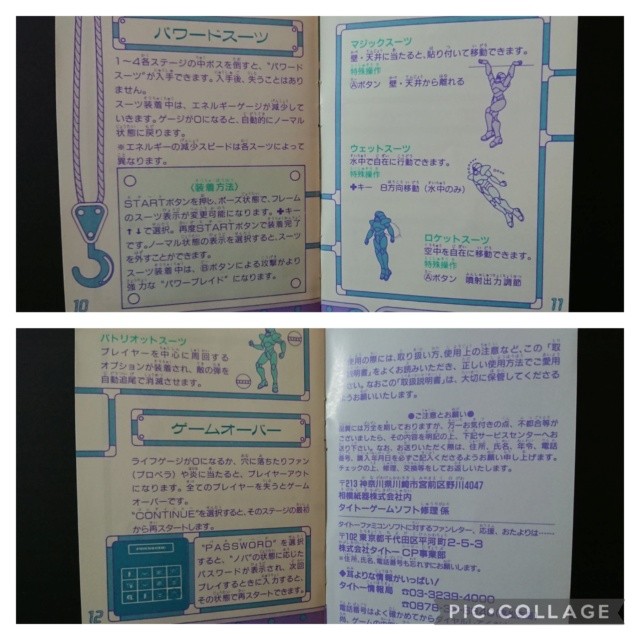 パワードスーツ
1〜4各ステージの中ボスを倒すと、"パワード
スーツ"が入手できます。入手後、失うことはあり
ません。
スーツ装着中は、エネルギーゲージが減少して
いきます。ゲージが0になると、自動的にノーマル
状態に戻ります。
※エネルギーの減少スピードは各スーツによって
異なります。
〈装着方法〉
STARTボタンを押し、ポーズ状態で、フレーム
のスーツ表示が変更可能になります。✚キー
↑↓で選択。再度STARTボタンで装着完了
です。ノーマル状態の表示を選択すると、スーツ
を外すことができます。
スーツ装着中は、Ⓑボタンによる攻撃がより
強力な"パワーブレイド"になります。
10
マジックスーツ
壁・天井に当たると、貼り付いて移動できます。
特殊操作
Ⓐボタン 壁・天井から離れる
ウェットスーツ
水中で自在に行動できます。
特殊操作
✚キー 8方向移動(水中のみ)
ロケットスーツ
空中を自在に移動できます。
特殊操作
Ⓐボタン 噴射出力調節
11
パトリオットスーツ
プレイヤーを中心に周回する
オプションが装着され、敵の弾を
自動追尾で消滅させます。
ゲームオーバー
ライフゲージが0になるか、穴に落ちたりファン
(プロペラ)や炎に当たると、プレイヤーアウト
になります。全てのプレイヤーを失うとゲーム
オーバーです。
"CONTINUE"を選択すると、そのステージの最初
から再スタートします。
PASSWORD
"PASSWORD"を選択
すると、"ノバ"の状態に応じた
パスワードが表示され、次回
プレイするときに入力すると、
その状態で再スタートできます。
12
使用の際には、取り扱い方、使用上の注意など、この「取
説明書」をよくお読みいただき、正しい使用方法でご愛用
ください。なおこの「取扱説明書」は、大切に保管してくださる
ようお願いいたします。
●ご注意とお願い●
には万全を期しておりますが、万一お気付きの点、不都合等が
ございましたら、その内容を明記の上、下記サービスセンターへお
送り下さい。なお、お送りいただく際は、住所、氏名、年令、電話
番号、購入年月日を必ずご記入くださるようお願い申し上げます。
チェックの上、修理、交換等をしてお返しいたします。
〒213 神奈川県川崎市宮前区野川4047
相模紙器株式会社内
タイトーゲームソフト修理係
タイトーファミコンソフトに対するファンレター、応援、おたよりは……
〒102 東京都千代田区平河町2-5-3
株式会社タイトー CP事業部
※住所、氏名、電話番号も忘れずにお願いします。
◆耳よりな情報がいっぱい/
タイトー情報局 ☎03-3239-4000
☎0878-
電話番号はよく確かめてから
PIC•COLLAGE